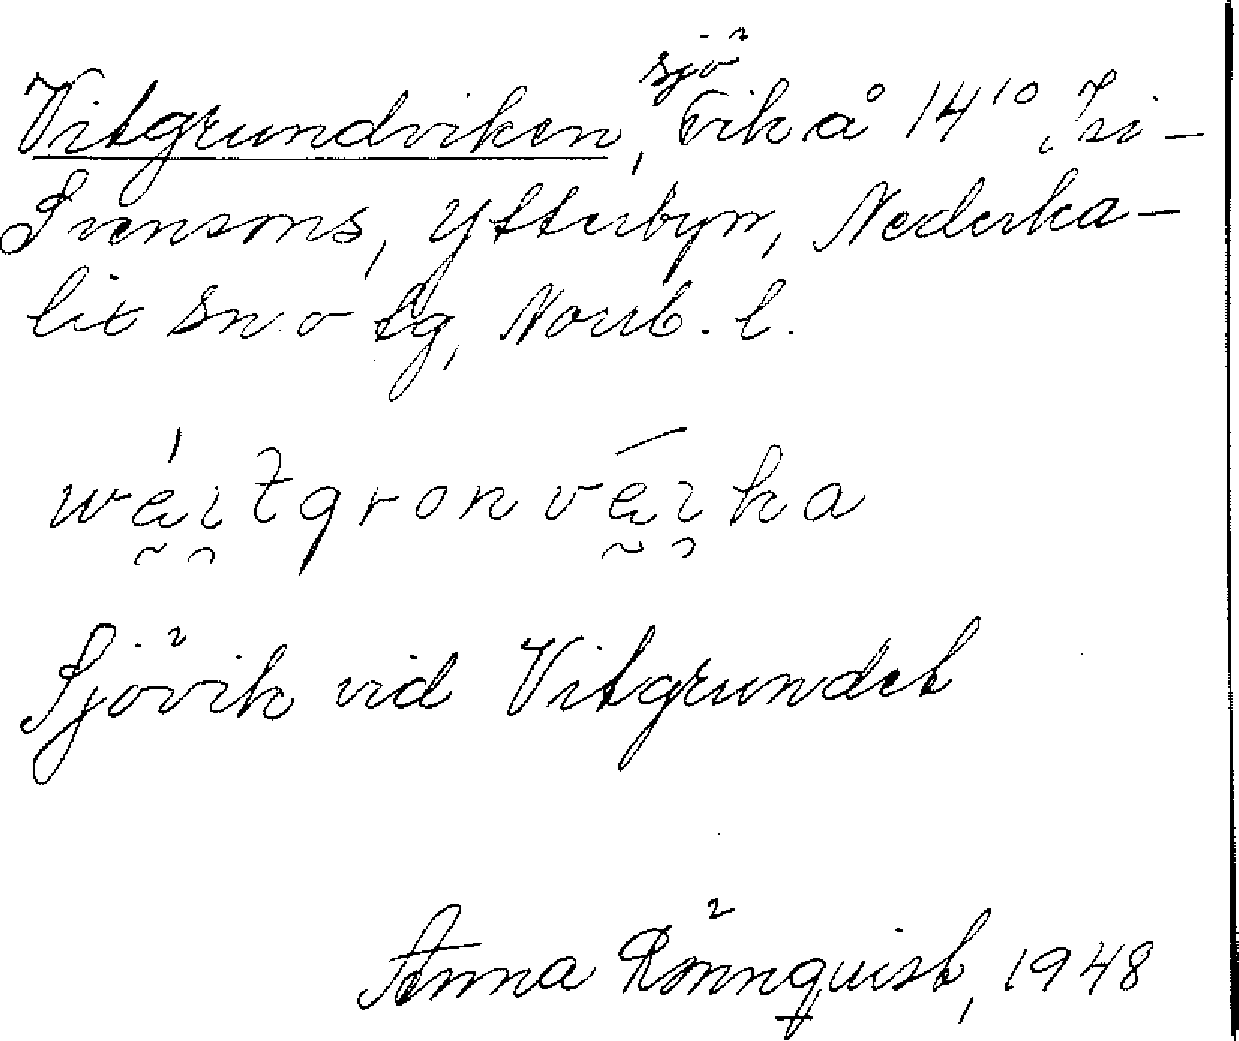 Vitgrundviken, sjövik å 14¹⁰, Isi-
Svensons, Ytterbyn, Nederka-
lix sn. o tg, Norrb. l.
wäitgronväika
Sjövik vid Vitgrundet
Anna Rönnquist, 1948